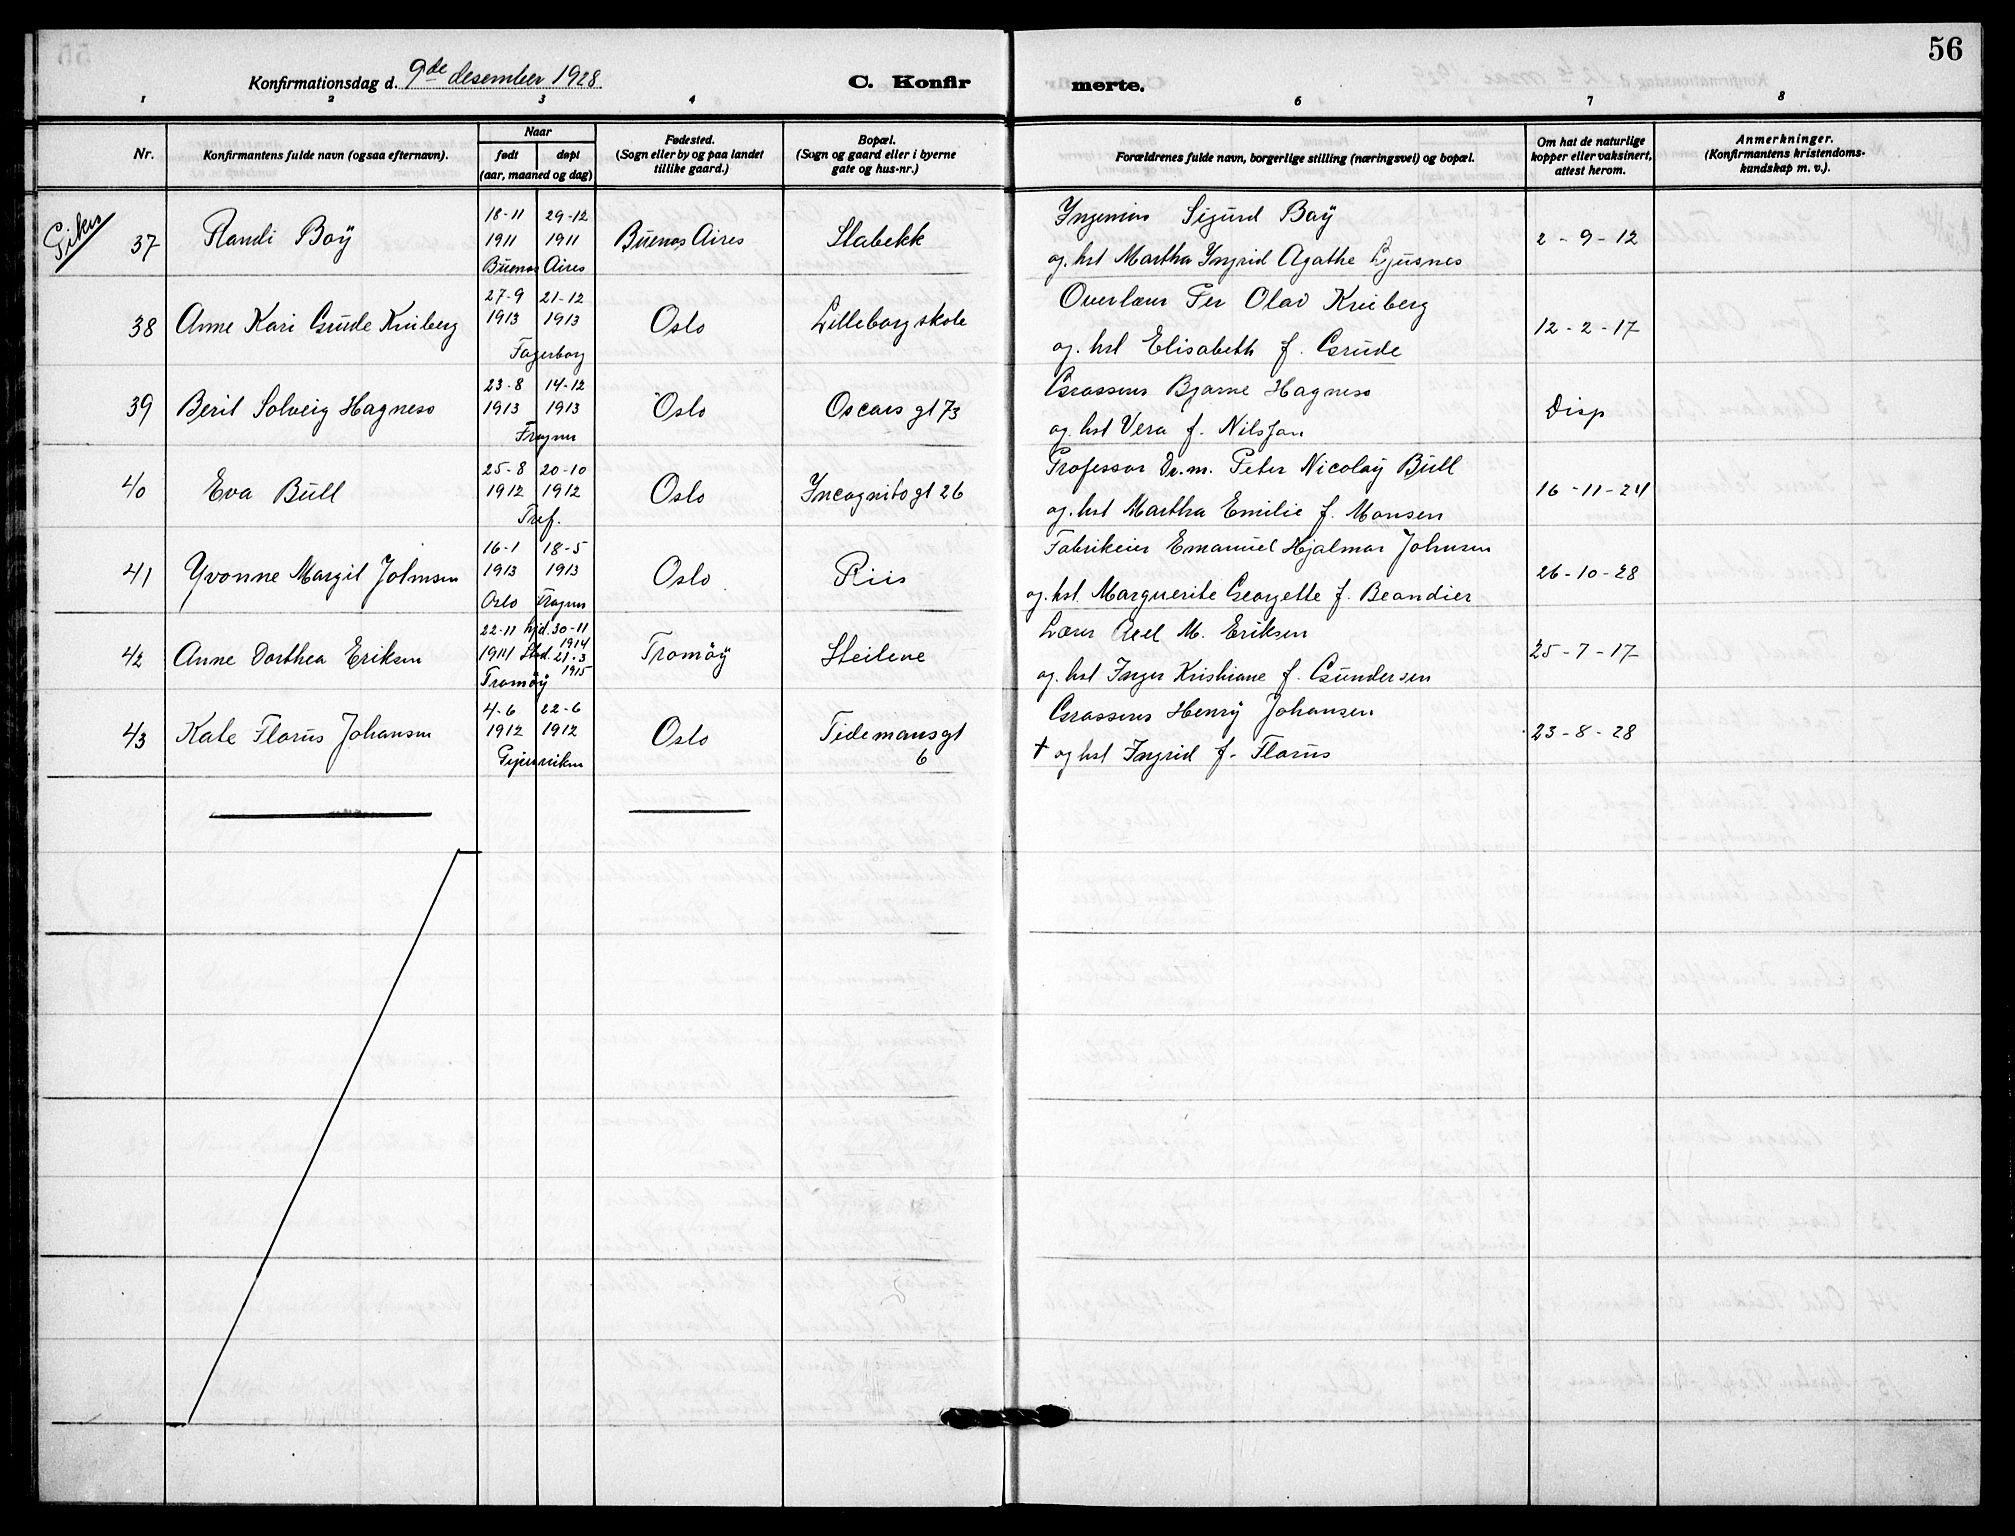 56
Konfirmationsdag d. 9de desember 1928
C. Konfir merte.
1 2 3 4 6 7 8
Nr.
Konfirmantens fulde navn (ogsaa efternavn).
Naar
født døpt
(aar, maaned og dag)
Fødested.
(Sogn eller by og paa landet
tillike gaard.)
Bopæl.
(Sogn og gaard eller i byerne
gate og hus-nr.)
Forældrenes fulde navn, borgerlige stilling (næringsvei) og bopæl.
Om hat de naturlige
kopper eller vaksinert,
attest herom.
Anmerkninger.
(Konfirmantens kristendoms-
kundskap m. v.).
Piker
18-11 29-12 Ingeniør Sigurd Boÿ
37 Randi Boÿ 1911 1911 Buenos Aires Stabekk 2-9-12
Buenos Aires og hst Martha Ingrid Agathe Ljusnes
27-9 21-12 Overlærer Per Olav Kviberg
38 Anne Kari Grude Kviberg 1913 1913 Oslo Lilleborg skole 12-2-17
Fagerborg og hst Elisabeth f. Grude
23-8 14-12 Grosserer Bjarne Hagness
39 Beril Solveig Hagness 1913 1913 Oslo Oscars gt 73 Disp
Frogner og hst Vera f. Nilsson
25-8 20-10 Professor Dr. m. Peter Nicolaÿ Bull
40 Eva Bull 1912 1912 Oslo Incognito gt 26 16-11-24
Tref. og hst Martha Emilie f. Monsen
16-1 18-5 Fabrikeier Emanuel Hjalmar Johnsen
41 Yvonne Margit Johnsen 1913 1913 Oslo Riis 26-10-28
Oslo Frogner og hst Marguerite Georgette f. Beandier
22-11 hjd. 30-11 1914 Lærer Axel M. Eriksen
42 Anne Dorthea Eriksen 1914 Sted. 21-3 1915 Tromöÿ Steilene 25-7-17
Tromöÿ og hst Inger Kristiane f. Gundersen
4-6 22-6 Grosserer Henrÿ Johansen
43 Kate Florus Johansen 1912 1912 Oslo Tidemansgt 6 23-8-28
† og hst Ingrid f. Florus